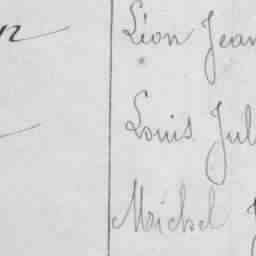 Léon Jean
Louis Jul
Michel